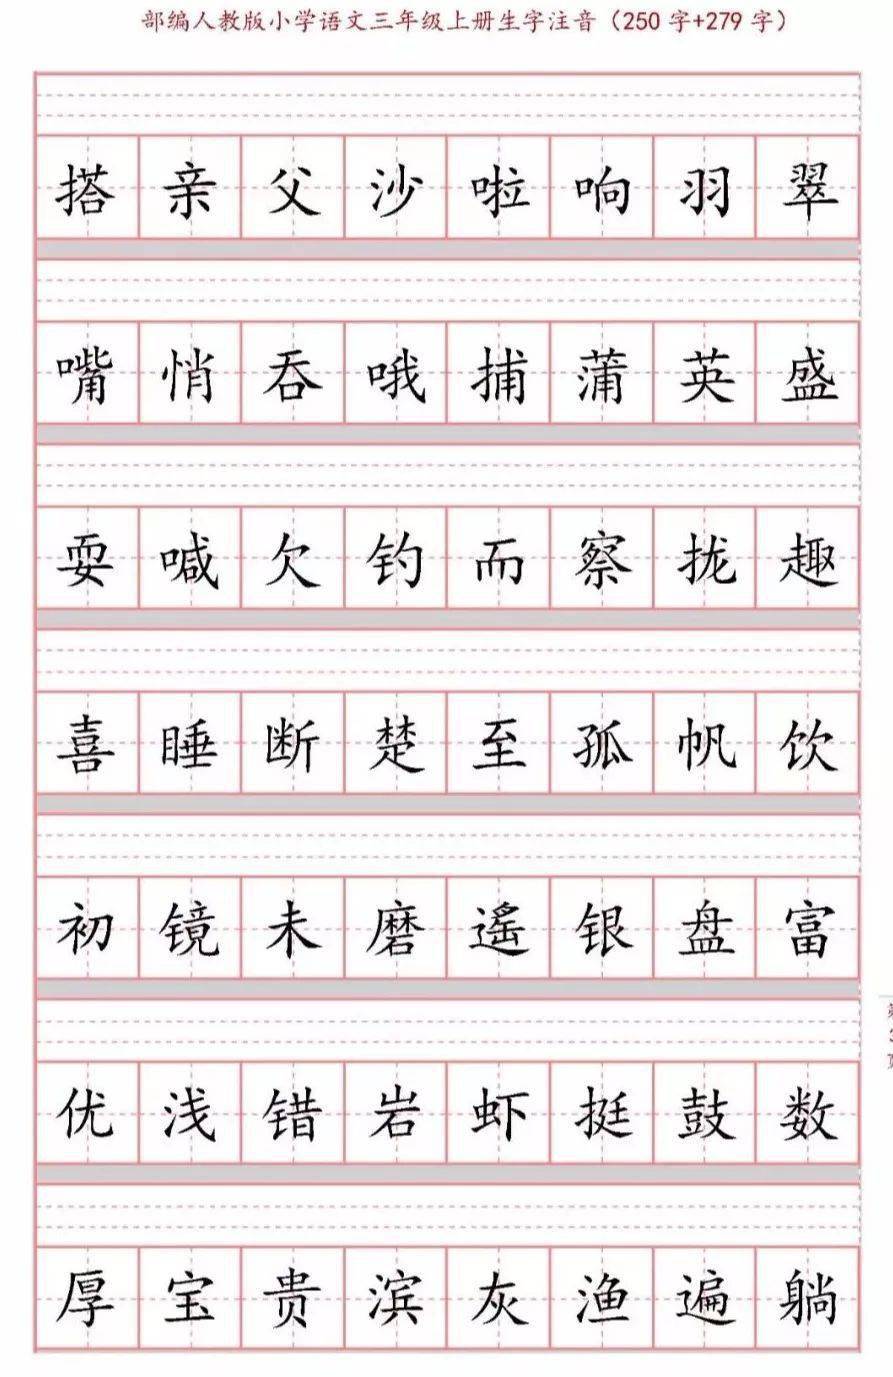 部编人教版小学语文三年级上册生字注音（250 字+279 字）
搭亲父沙啦响羽翠
嘴悄吞哦捕蒲英盛
耍喊欠钓而察拢趣
喜睡断楚至孤帆饮
初镜未磨遥银盘富
优浅错岩虾挺鼓数
厚宝贵滨灰渔遍躺